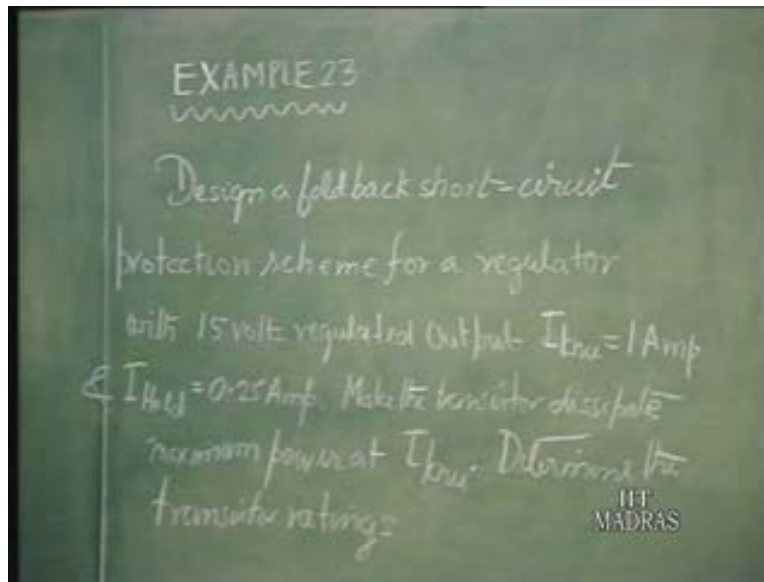 EXAMPLE 23
Design a foldback short-circuit
protection scheme for a regulator
with 15 volts regulated output Iknee = 1 Amp
& IHold = 0.25 Amp. Make the transistor dissipate
maximum power at Iknee. Determine the
transistor ratings
IIT
MADRAS